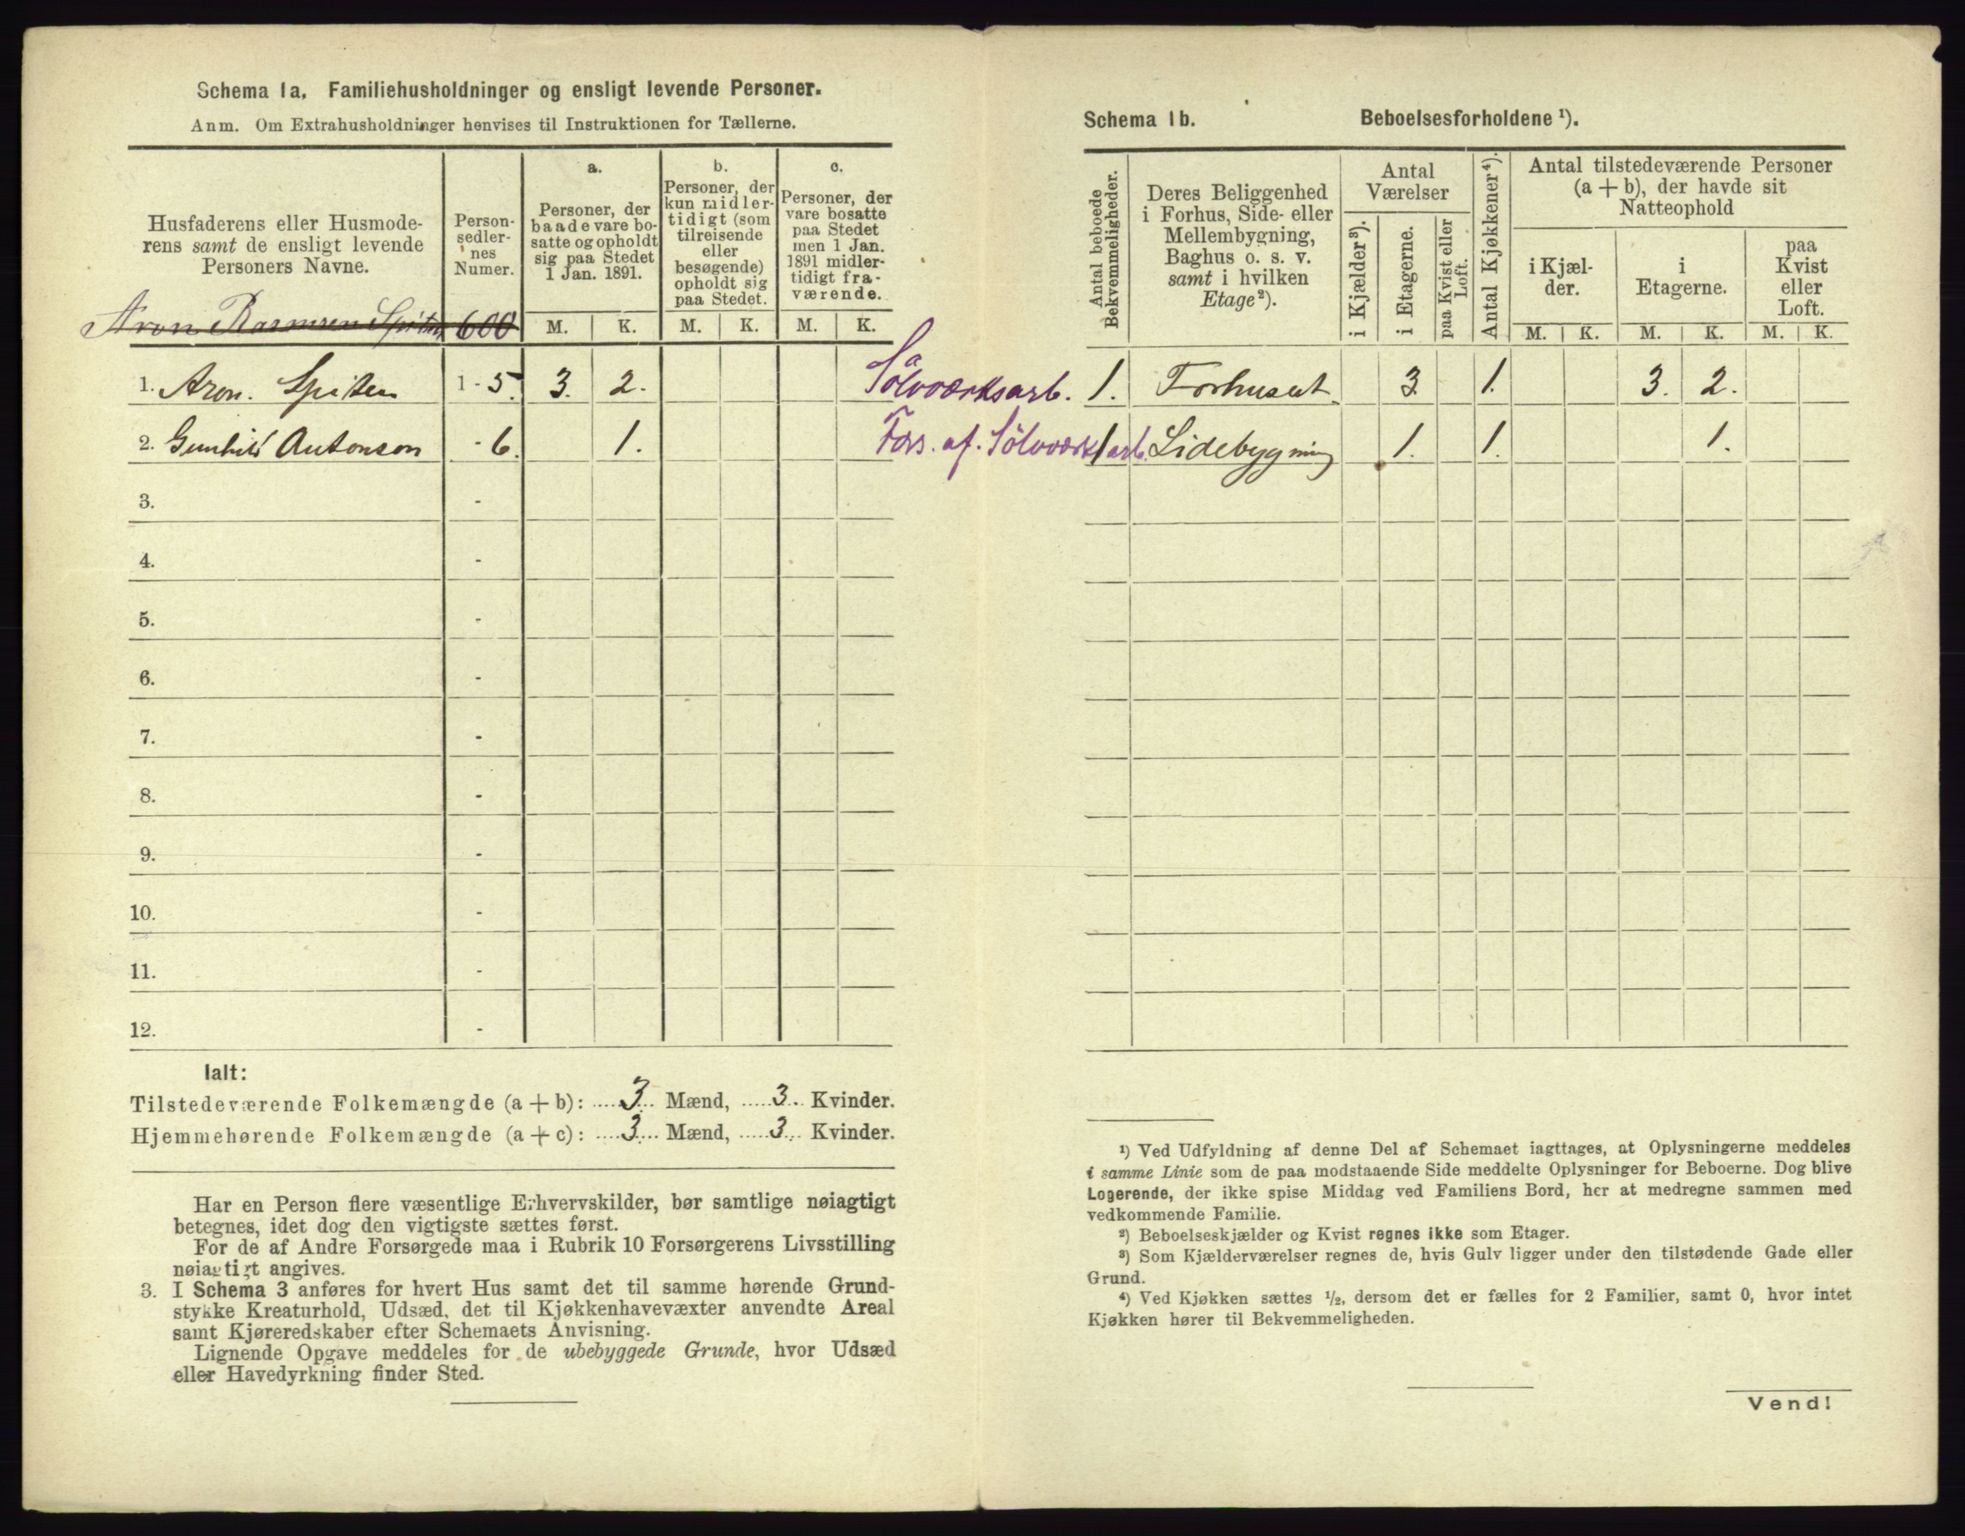 Schema 1a. Familiehusholdninger og ensligt levende Personer.
Anm. Om Extrahusholdninger henvises til Instruktionen for Tællerne.
Husfaderens eller Husmode-
rens samt de ensligt levende
Personers Navne.
Person-
sedler-
nes
Numer.
a.
Personer, der
baade vare bo-
satte og opholdt
sig paa Stedet
1 Jan. 1891.
b.
Personer, der
kun midler-
tidigt (som
tilreisende
eller
besøgende)
opholdt sig
paa Stedet.
c.
Personer, der
vare bosatte
paa Stedet
men 1 Jan.
1891 midler-
tidigt fra-
værende.
M. K. M. K. M. K.
Aron Rasmusen Spiten 600
1. Aron. Spiten 1 - 5. 3. 2. Sølvværksarb.
2. Gunhild Antonson - 6. 1. Fors. af. Sølvværksarb.
3. -
4. -
5. -
6. -
7. -
8. -
9. -
10. -
11. -
12. -
Ialt:
Tilstedeværende Folkemængde (a + b): 3 Mænd, 3 Kvinder.
Hjemmehørende Folkemængde (a + c): 3 Mænd, 3 Kvinder.
Har en Person flere væsentlige Erhvervskilder, bør samtlige nøiagtigt
betegnes, idet dog den vigtigste sættes først.
For de af Andre Forsørgede maa i Rubrik 10 Forsørgerens Livsstilling
nøiagtigt angives.
3. I Schema 3 anføres for hvert Hus samt det til samme hørende Grund-
stykke Kreaturhold, Udsæd, det til Kjøkkenhavevæxter anvendte Areal
samt Kjøreredskaber efter Schemaets Anvisning.
Lignende Opgave meddeles for de ubebyggede Grunde, hvor Udsæd
eller Havedyrkning finder Sted.
Schema 1b. Beboelsesforholdene ¹).
Antal beboede
Bekvemmeligheder.
Deres Beliggenhed
i Forhus, Side- eller
Mellembygning,
Baghus o. s. v.
samt i hvilken
Etage²).
Antal
Værelser
i Kjælder ³).
i Etagerne.
paa Kvist eller
Loft.
Antal Kjøkkener ⁴).
Antal tilstedeværende Personer
(a + b), der havde sit
Natteophold
i Kjæl-
der.
i
Etagerne.
paa
Kvist
eller
Loft.
M. K. M. K. M. K.
1. Forhuset 3. 1. 3. 2.
1 Sidebygning 1. 1. 1.
¹) Ved Udfyldning af denne Del af Schemaet iagttages, at Oplysningerne meddeles
i samme Linie som de paa modstaaende Side meddelte Oplysninger for Beboerne. Dog blive
Logerende, der ikke spise Middag ved Familiens Bord, her at medregne sammen med
vedkommende Familie.
²) Beboelseskjælder og Kvist regnes ikke som Etager.
³) Som Kjælderværelser regnes de, hvis Gulv ligger under den tilstødende Gade eller
Grund.
⁴) Ved Kjøkken sættes ½, dersom det er fælles for 2 Familier, samt 0, hvor intet
Kjøkken hører til Bekvemmeligheden.
Vend!